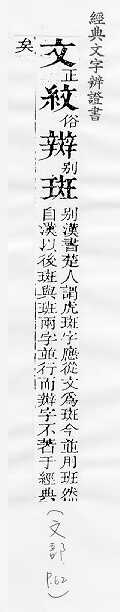 經典文字辨證書
文正紋俗辬别斑
别漢書楚人謂虎斑字應從文爲斑今並用班然
自漢以後斑與班兩字並行而辬字不著于經典
矣
(文部 P.62)